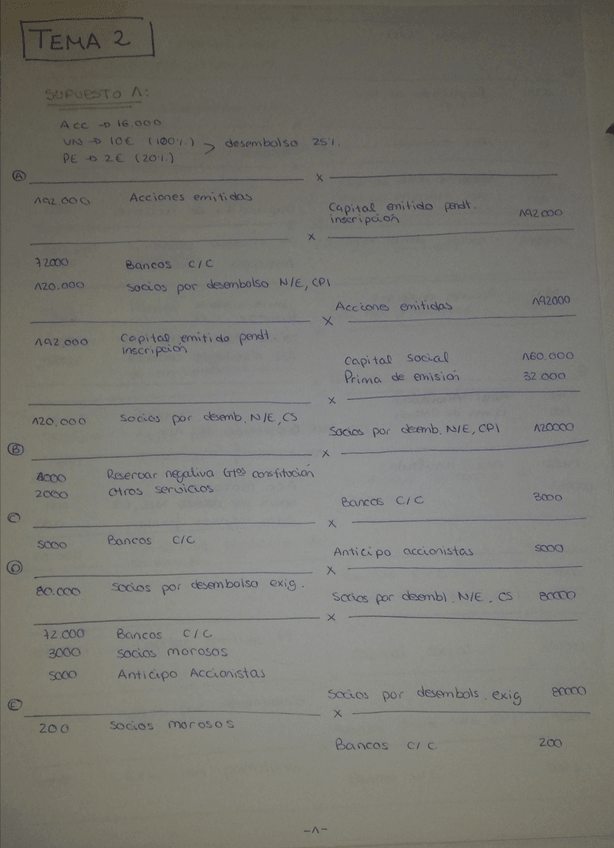 TEMA 2
SUPUESTO 1:
Acc → 16.000
VN → 10€ (100%) > desembolso 25%
PE → 2€ (20%)
A x
192.000 Acciones emitidas
Capital emitido pendt. inscripción 192000
x
72000 Bancos c/c
120.000 Socios por desembolso N/E, CPI
Acciones emitidas 192000
x
192.000 Capital emitido pendt. inscripción
Capital social 160.000
Prima de emisión 32.000
x
120.000 Socios por desemb. N/E, CS
Socios por desemb. N/E, CPI 120000
B x
1000 Reservar negativa Gtos constitución
2000 Otros servicios
Bancos c/c 3000
C x
5000 Bancos c/c
Anticipo accionistas 5000
D x
80.000 Socios por desembolso exig.
Socios por desembl. N/E. CS 80000
x
72.000 Bancos c/c
3000 Socios morosos
5000 Anticipo Accionistas
Socios por desembols. exig 80000
E x
200 Socios morosos
Bancos c/c 200
-1-